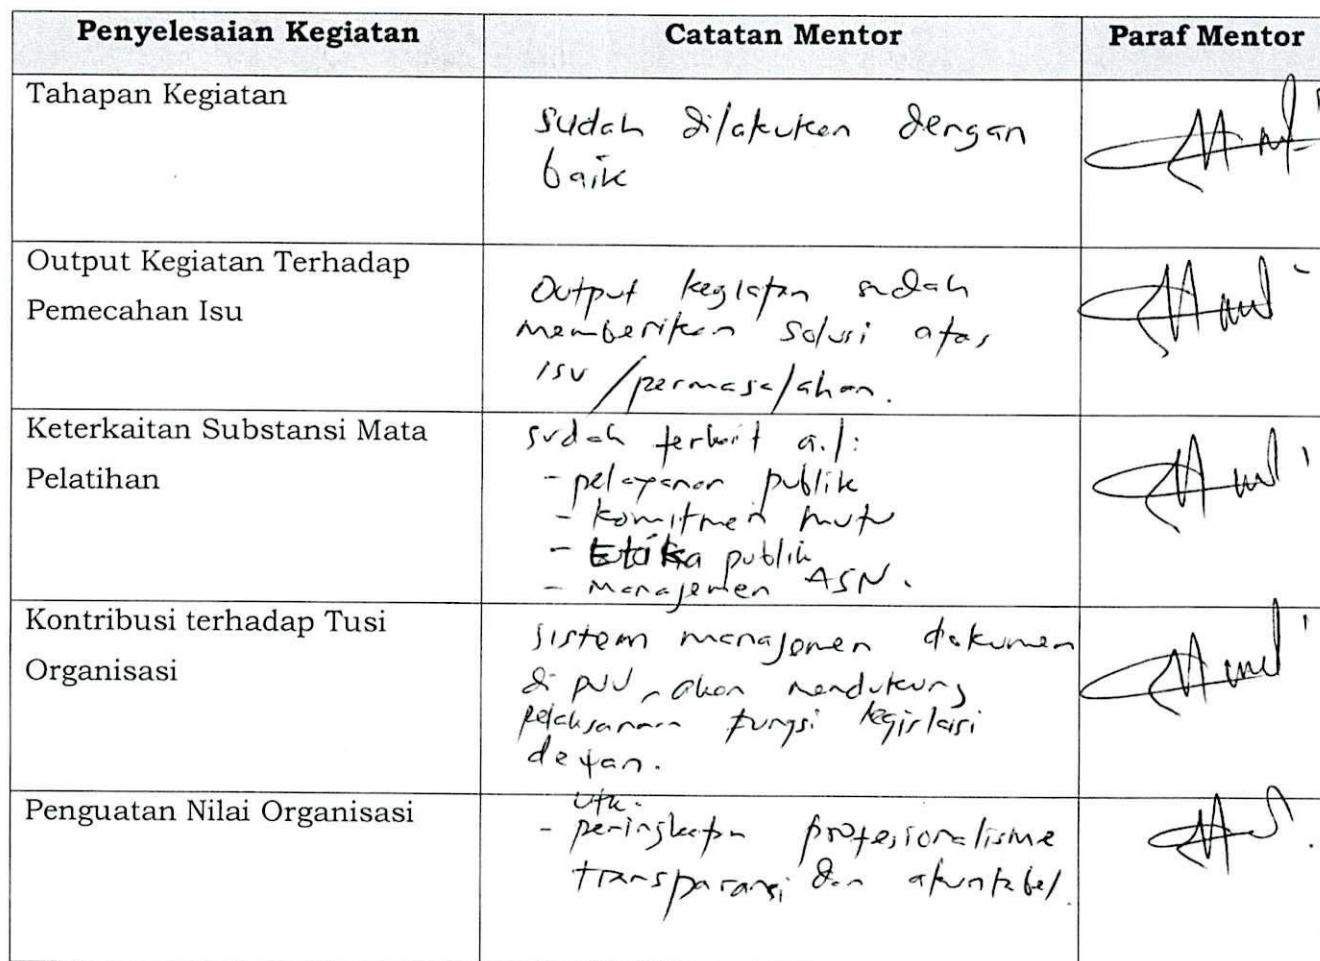 Penyelesaian Kegiatan
Catatan Mentor
Paraf Mentor
Tahapan Kegiatan
sudah dilakukan dengan
baik
Output Kegiatan Terhadap
Pemecahan Isu
Output kegiatan sudah
memberikan solusi atas
isu / permasalahan.
Keterkaitan Substansi Mata
Pelatihan
sudah terkait a.l:
- pelayanan publik
- komitmen mutu
- Etika publik
- manajemen ASN.
Kontribusi terhadap Tusi
Organisasi
sistem manajemen dokumen
di PUU, akan mendukung
pelaksanaan fungsi legislasi
dewan.
Penguatan Nilai Organisasi
utk.
- peningkatan profesionalisme
transparansi dan akuntabel.